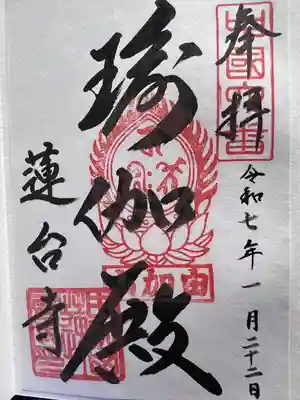 奉拝
令和七年一月二十二日
瑜伽殿
蓮台寺